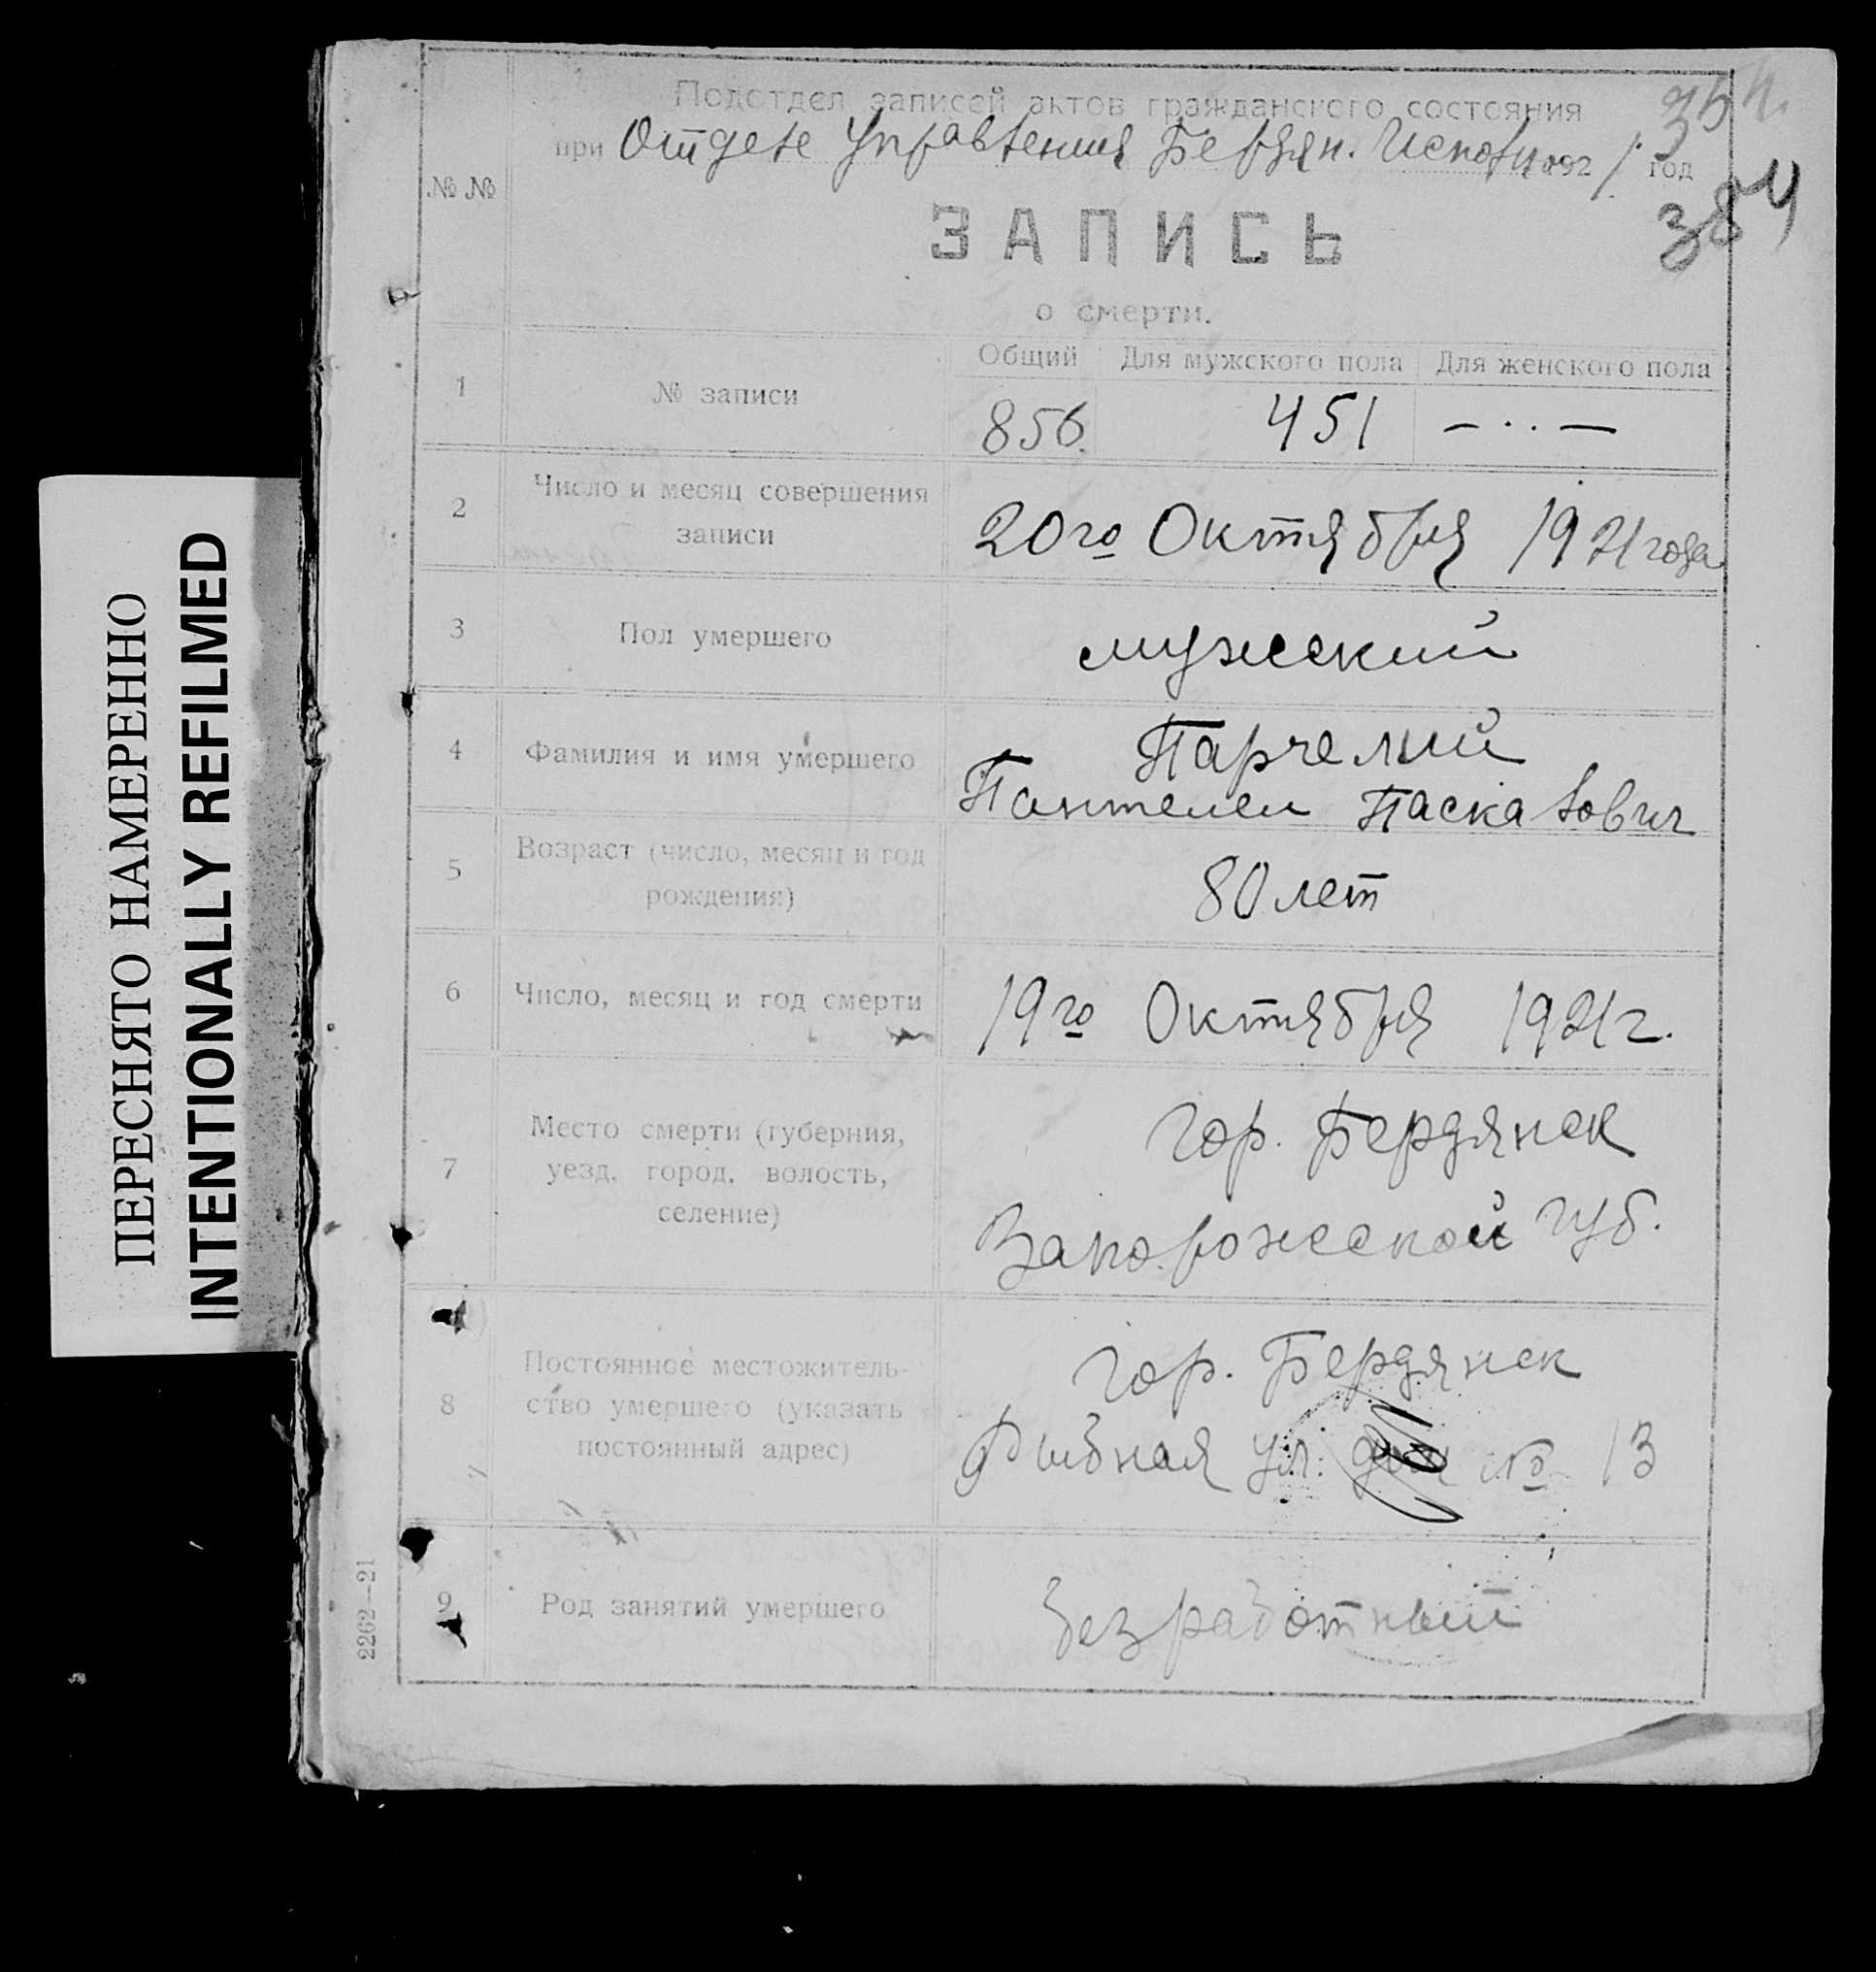 ПЕРЕСНЯТО НАМЕРЕННО
INTENTIONALLY REFILMED
Подотдел записей актов гражданского состояния
при Отделе Управления Бердян. 192 1. год
384
№ №
ЗАПИСЬ
о смерти.
Общий Для мужского пола Для женского пола
1 № записи 856. 451 — · · —
2 Число и месяц совершения
записи
20го Октября 1921 года
3 Пол умершего мужеский
4 Фамилия и имя умершего Парчелий
Пантелеи Паскалович
5 Возраст (число, месяц и год
рождения)
80 лет
6 Число, месяц и год смерти 19го Октября 1921 г.
7 Место смерти (губерния,
уезд, город, волость,
селение)
гор. Бердянск
Запорожеской губ.
8 Постоянное местожитель-
ство умершего (указать
постоянный адрес)
гор. Бердянск
Рыбная ул. № 13
9 Род занятий умершего безработный
2262—21